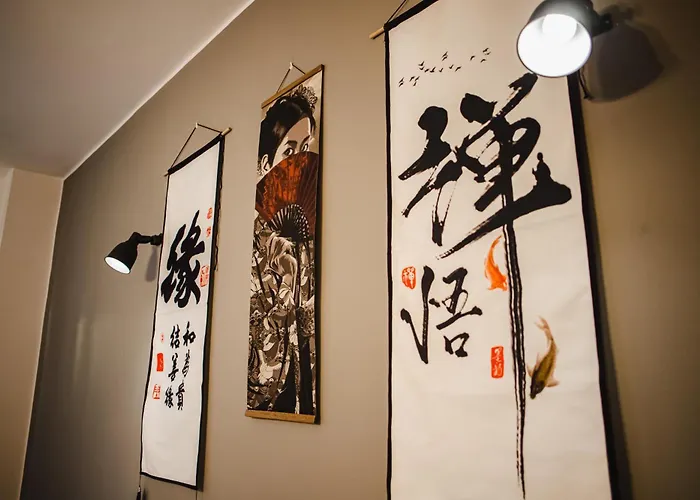 緣
和為貴
結善緣
禪
悟